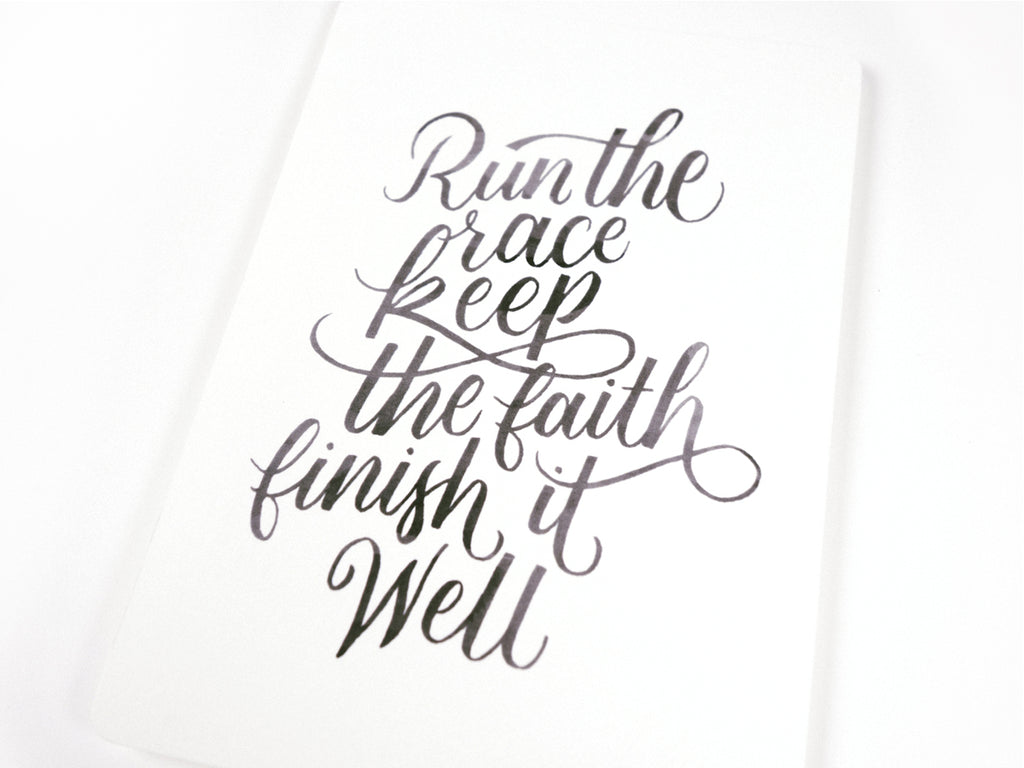 Run the
race
keep
the faith
finish it
Well